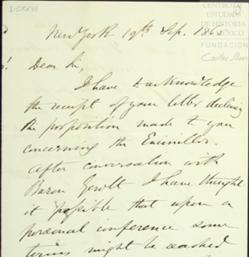 New York 19th Sep. 1865
Dear Sir,
I have to acknowledge
the receipt of your letter declining
the proposition made to you
concerning the
After conversation with
Baron Gerolt I have thought
it possible that upon a
personal conference some
terms might be reached
CENTRO DE
ESTUDIOS
DE HISTORIA
DE MEXICO
FUNDACION
Carlos Slim